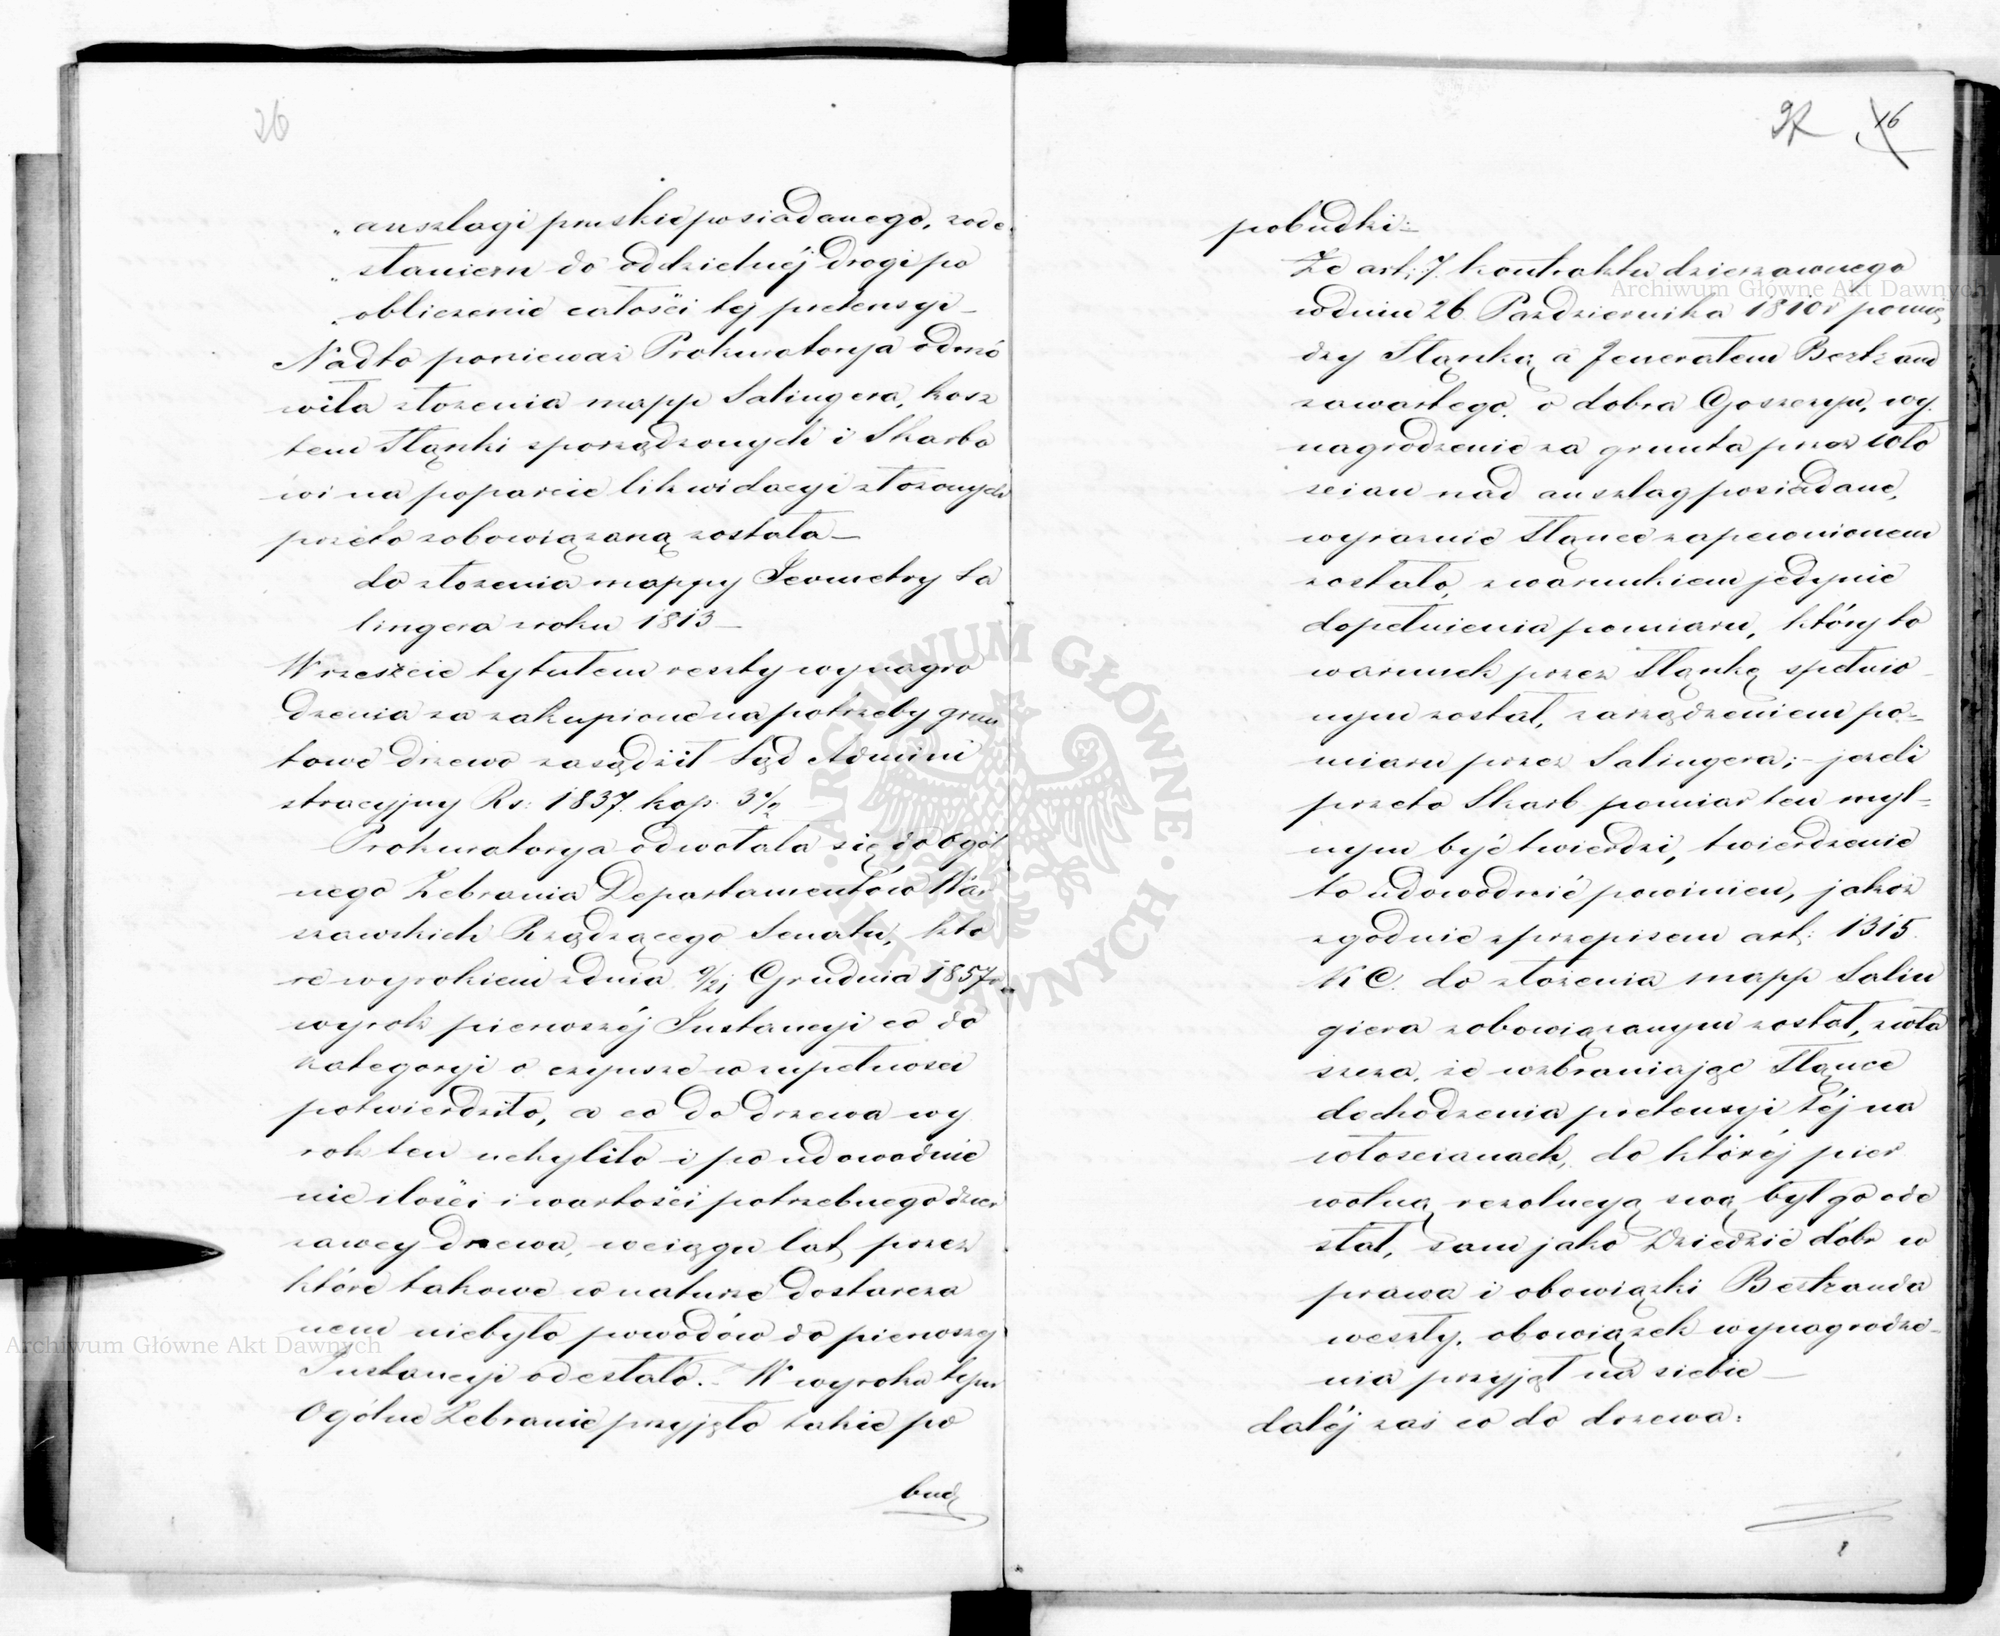 26
„anszlagi pruskie posiadanego, zode
„słaniem do oddzielnéj drogi po
„obliczenie całości tej pretensyi –
Nadto ponieważ Prokuratorya odmó
wiła złożenia mapp Salingera, kosz
tem Slązki sporządzonych i Skarbo
wi na poparcie likwidacyi złożonych
przeto zobowiązaną została –
do złożenia mappy Jeometry Sa
lingera z roku 1813 –
Wrzeszcie tytułem reszty wynagro
dzenia za zakupione na potrzeby grun
towe drzewo zasądził Sąd Admini
stracyjny Rs: 1837. kop. 3½
Prokuratorya odwołała się do Ogól
nego Zebrania Departamentów War
szawskich Rządzącego Senatu, któ
re wyrokiem z dnia 9/21 Grudnia 1857 r.
wyrok pierwszéj Instancyi co do
kategoryi o czynsze w zupełności
potwierdziło, a co do drzewa wy
rok ten uchyliło i po udowodnie
nie ilości i wartości potrzebnego dzier
żawcy drzewa, w ciągu lat, przez
które takowe w naturze dostarcza
nem niebyło powodów do pierwszej
Instancyi odesłało. – W wyroku tym
Ogólne Zebranie przyjęło takie po
bud
37 16
pobudki:
Że art: 7. kontraktu dzierżawnego
w dniu 26. Października 1810 r pomię
dzy Slązką a Jenerałem Bertrand
zawartego, o dobra Goszczyn, wy
nagrodzenie za grunta przez wło
ścian nad anszlag posiadane,
wyraznie Slązce zapewnionem
zostało, z warunkiem jedynie
dopełnienia pomiaru, który to
warunek przez Slązkę spełnio
nym został, zarządzeniem po=
miaru przez Salingera; – jeżeli
przeto Skarb pomiar ten myl=
nym być twierdzi, twierdzenie
to udowodnić powinien, jakoż
zgodnie z przepisem art: 1315.
KC. do złożenia mapp Salin
giera zobowiązanym został, zwła
szcza, że wzbraniając Slązce
dochodzenia pretensyi téj na
włościanach, do któréj pier
wotną rezolucyą swą był go ode
słał, sam jako Dziedzic dóbr w
prawa i obowiązki Bertranda
weszły, obowiązek wynagrodze–
nia przyjął na siebie –
daléj zaś co do drzewa:
Archiwum Główne Akt Dawnych
Archiwum Główne Akt Dawnych
ARCHIWUM GŁÓWNE · AKT DAWNYCH ·